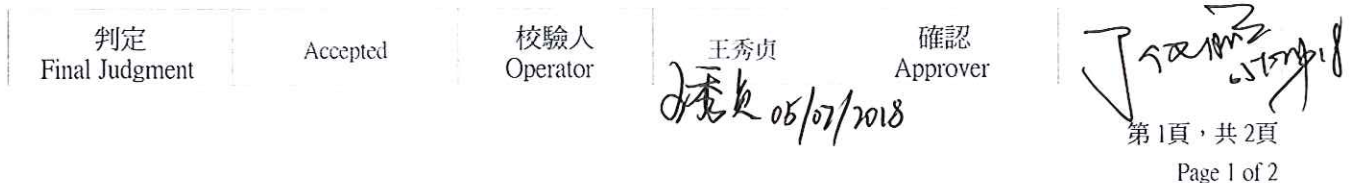 判定
Final Judgment
Accepted
校驗人
Operator
王秀贞
確認
Approver
王秀贞 05/07/2018
第 1頁，共 2頁
Page 1 of 2